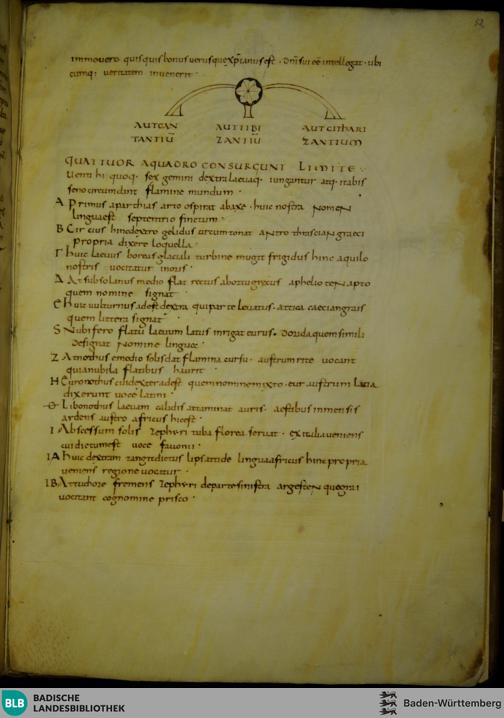 52
inmouero quisquis bonus uerusque xp̄ianus est · dn̄i sui eē intellegat · ubi
cumq; ueritatem inuenerit ·
AUT CAN AUT TIBI AUT CITHARI
TANTIŪ ZANTIŪ ZANTIUM
QUATTUOR AQUADRO CONSURGUNT LIMITE
Uenti hi quoq; gemini dextra laeuaq; iunguntur atq; itabis
seno circumdant flamine mundum ·
A Primus aparthias arto spirat abaxe · huic nostra nomen
lingua est septentrio finctum ·
B Circius hinc dextro gelidus circum tonat antro thrascian graeci
propria dixere loquella ·
Γ huic laeuus boreas glaciali turbine mugit frigidus hinc aquilo
nostris uocitatur inoris ·
Δ At subsolanus medio flat rectus ab ortu
quem nomine signat
huic uulturnus adest dextra, qui parte leuatus · attica caecian grais
quem littera signat
S Nubifero flatu laeuum latus inrigat eurus · quem simili
designat nomine lingua
Z At nothus emedio solis dat flamina cursu · austrum rite uocant
quia nubila flatibus haurit ·
H Euronothus cui dexter adest quem nomine mixto · eur austrum latia
dixerunt uoce latini ·
Libonothus laeuam calidis attaminat auris · aestibus inmensis
ardens austro africus hic est ·
I At occasum solis zephyri tuba florea seruat · ex italia ueniens
cui dictum est uoce fauoni ·
IA huic dextram tangit dictus lips attide lingua africus hinc propria
ueniens regione uocatur ·
IB At tu chore fremens zephyri de parte sinistra argesten quegrai
uocitant cognomine prisco ·
BLB BADISCHE
LANDESBIBLIOTHEK
Baden-Württemberg